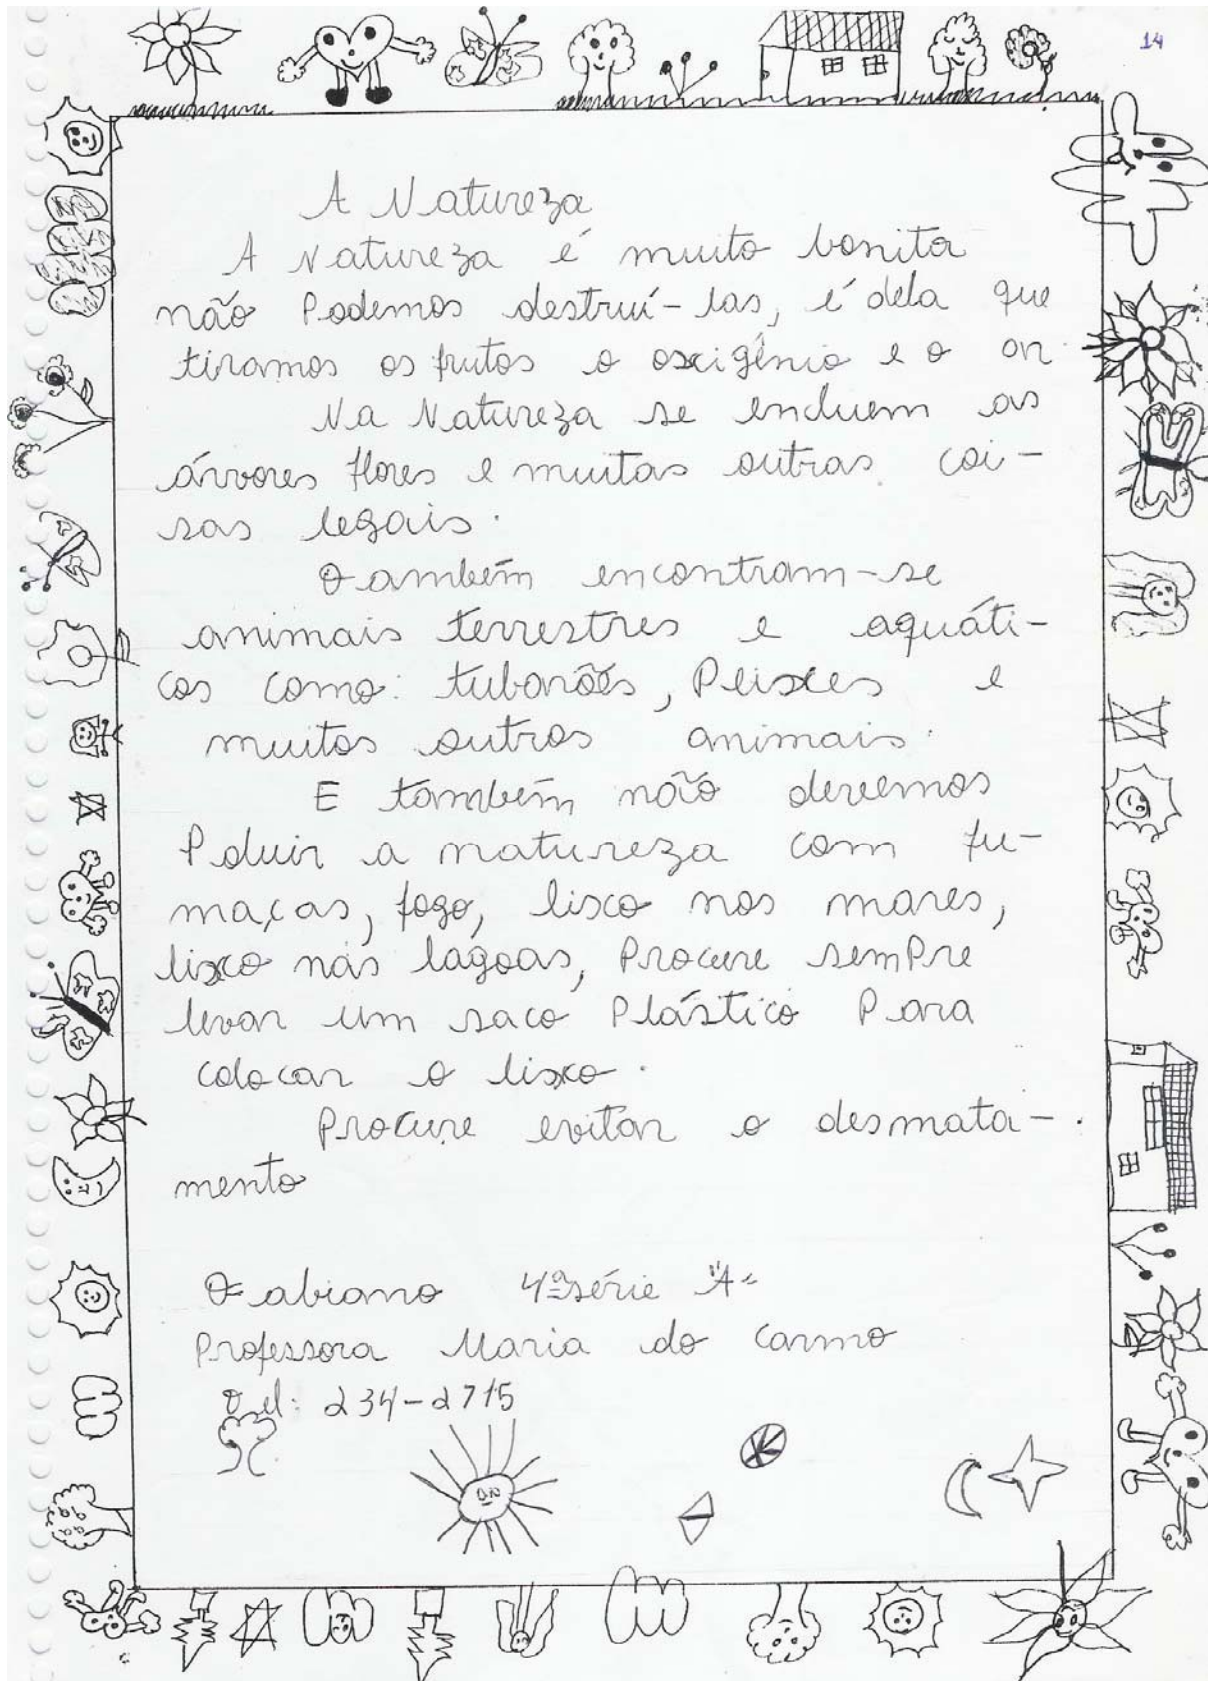 14
A Natureza
A Natureza é muito bonita
não Podemos destruí-las, é dela que
tiramos os frutos o oxigênio e o ar
Na Natureza se encluem as
árvores flores e muitas outras coi-
sas legais.
Também encontram-se
animais terrestres e aquáti-
cos como: tubarões, Peixes e
muitos outros animais.
E também não devemos
Poluir a natureza com fu-
maças, fogo, lixo nos mares,
lixo nas lagoas, Procure sempre
levar um saco Plástico Para
colocar o lixo.
Procure evitar o desmata-
mento
Fabiano 4ª série "A"
Professora Maria do Carmo
Tel: 234-2715